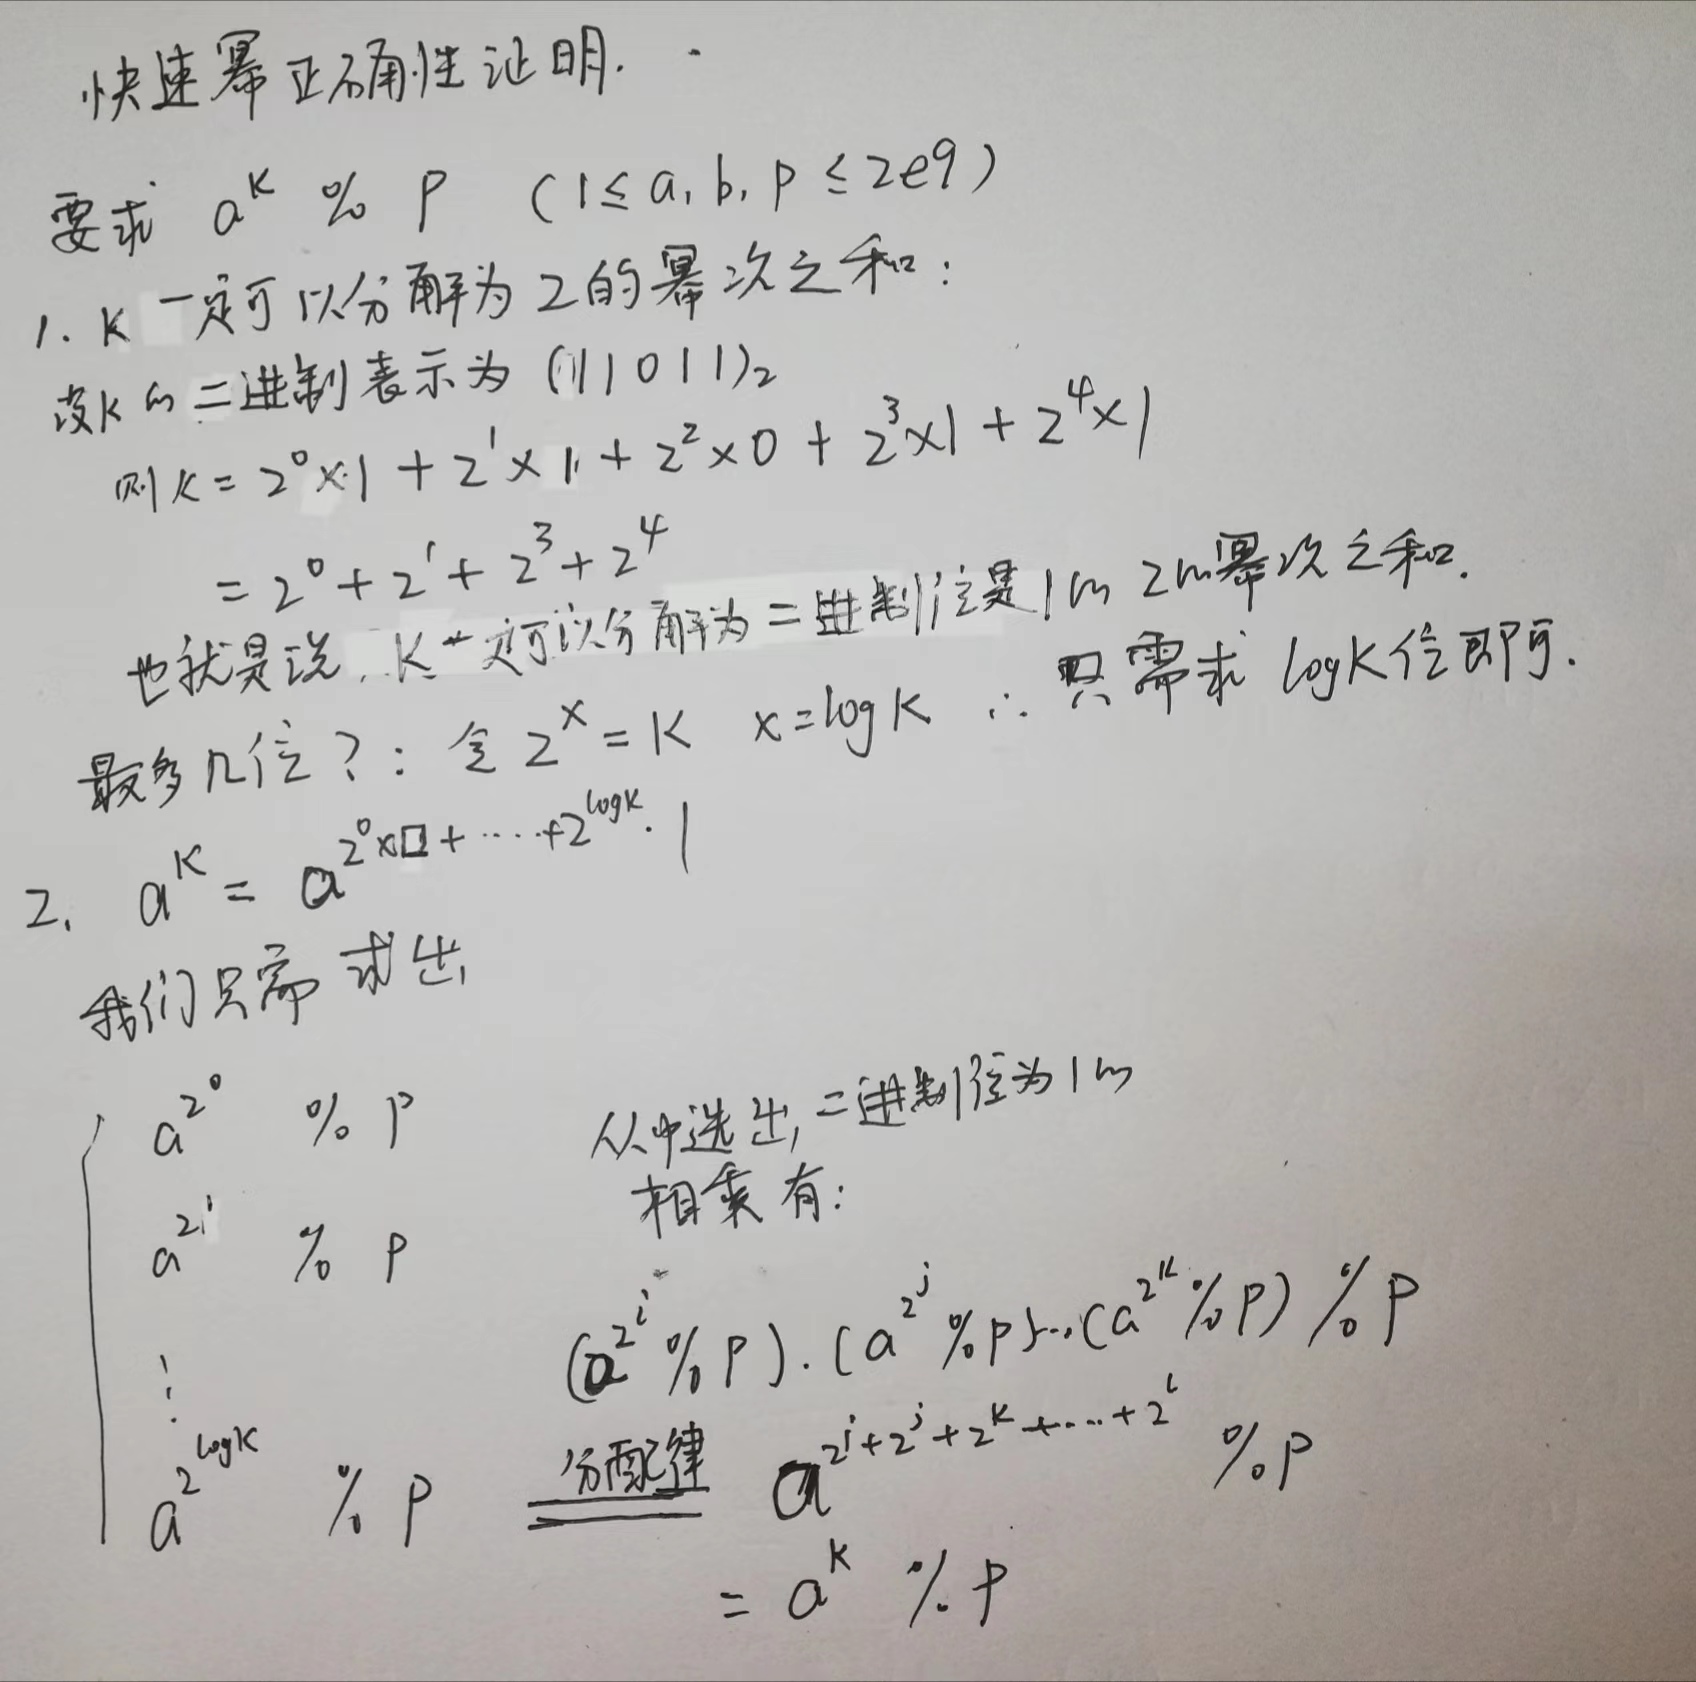 快速幂正确性证明.
要求 a^k % p (1≤a, b, p≤2e9)
1. K一定可以分解为2的幂次之和:
设K的二进制表示为(11011)₂
则K=2^0×1+2^1×1+2^2×0+2^3×1+2^4×1
=2^0+2^1+2^3+2^4
也就是说,K一定可以分解为二进制位是1的2的幂次之和.
最多几位?:令2^x=K x=logK ∴只需求logK位即可.
2. a^K=a^{2^0×□+……+2^{logK}·1}
我们只需求出
a^{2^0} % p
a^{2^1} % p
⋮
a^{2^{logK}} % p
从中选出二进制位为1的
相乘有:
(a^{2^i}%p)·(a^{2^j}%p)…(a^{2^k}%p)%p
分配律 a^{2^i+2^j+2^k+…+2^l} %p
=a^k %p